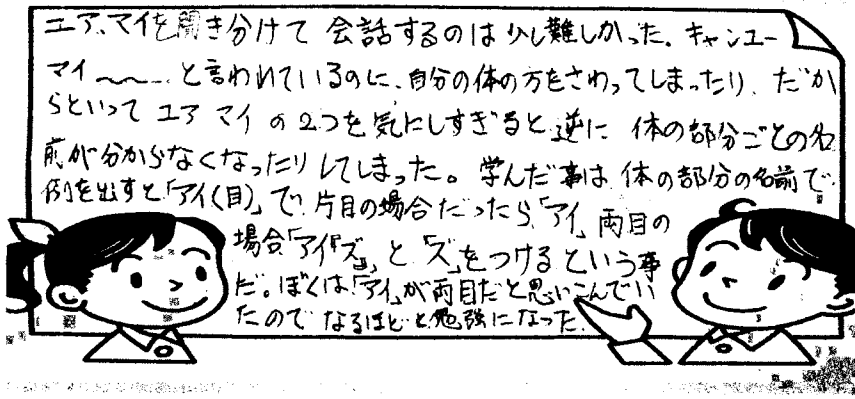 ユア、マイを聞き分けて 会話するのは少し難しかった。キャンユー
マイ〜〜〜と言われているのに、自分の体の方をさわってしまったり、だか
らといって ユア マイ の2つを気にしすぎると逆に 体の部分ごとの名
前が分からなくなったりしてしまった。 学んだ事は 体の部分の名前で、
例を出すと「アイ(目)」で 片目の場合だったら「アイ」両目の
場合「アイ『ズ』」と「ズ」をつけるという事
だ。ぼくは「アイ」が両目だと思いこんでい
たので なるほどと勉強になった。